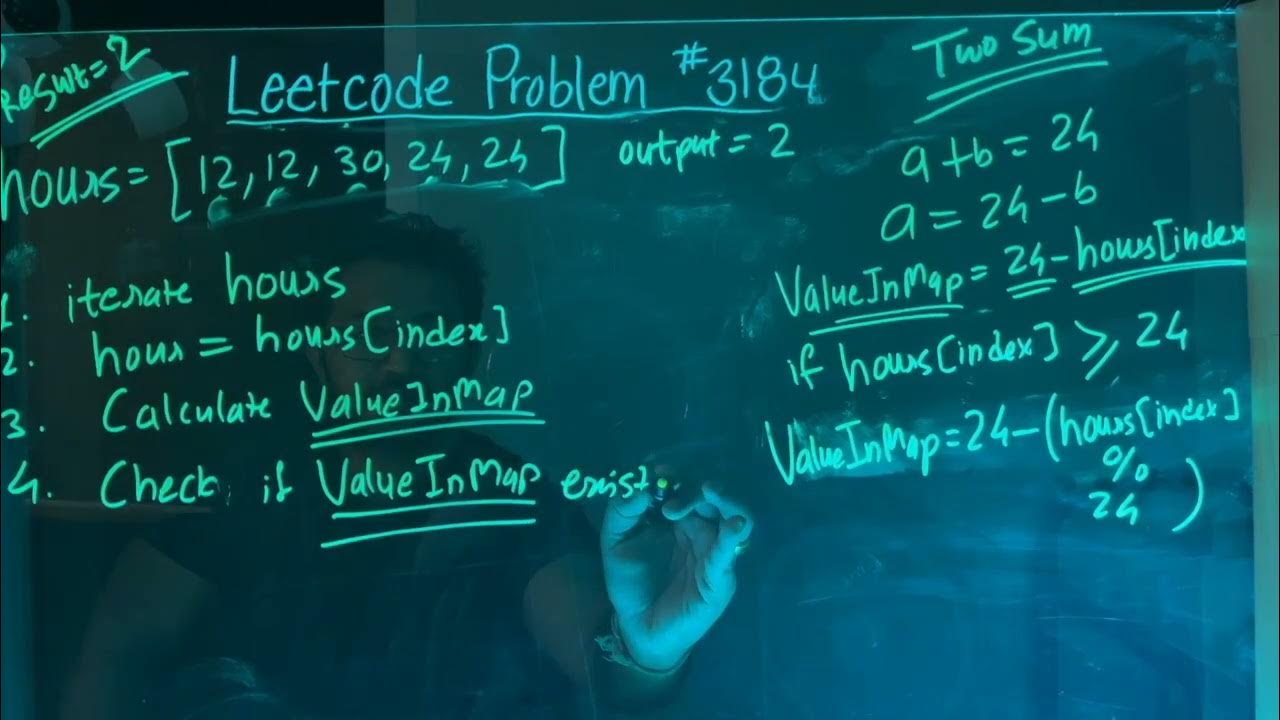 Result = 2
Leetcode Problem #3184
hours = [12, 12, 30, 24, 24] output = 2
1. iterate hours
2. hour = hours[index]
3. Calculate ValueInMap
4. Check if ValueInMap exist
Two Sum
a + b = 24
a = 24 - b
ValueInMap = 24 - hours[index
if hours[index] ⩾ 24
ValueInMap = 24 - (hours[index]
%
24 )